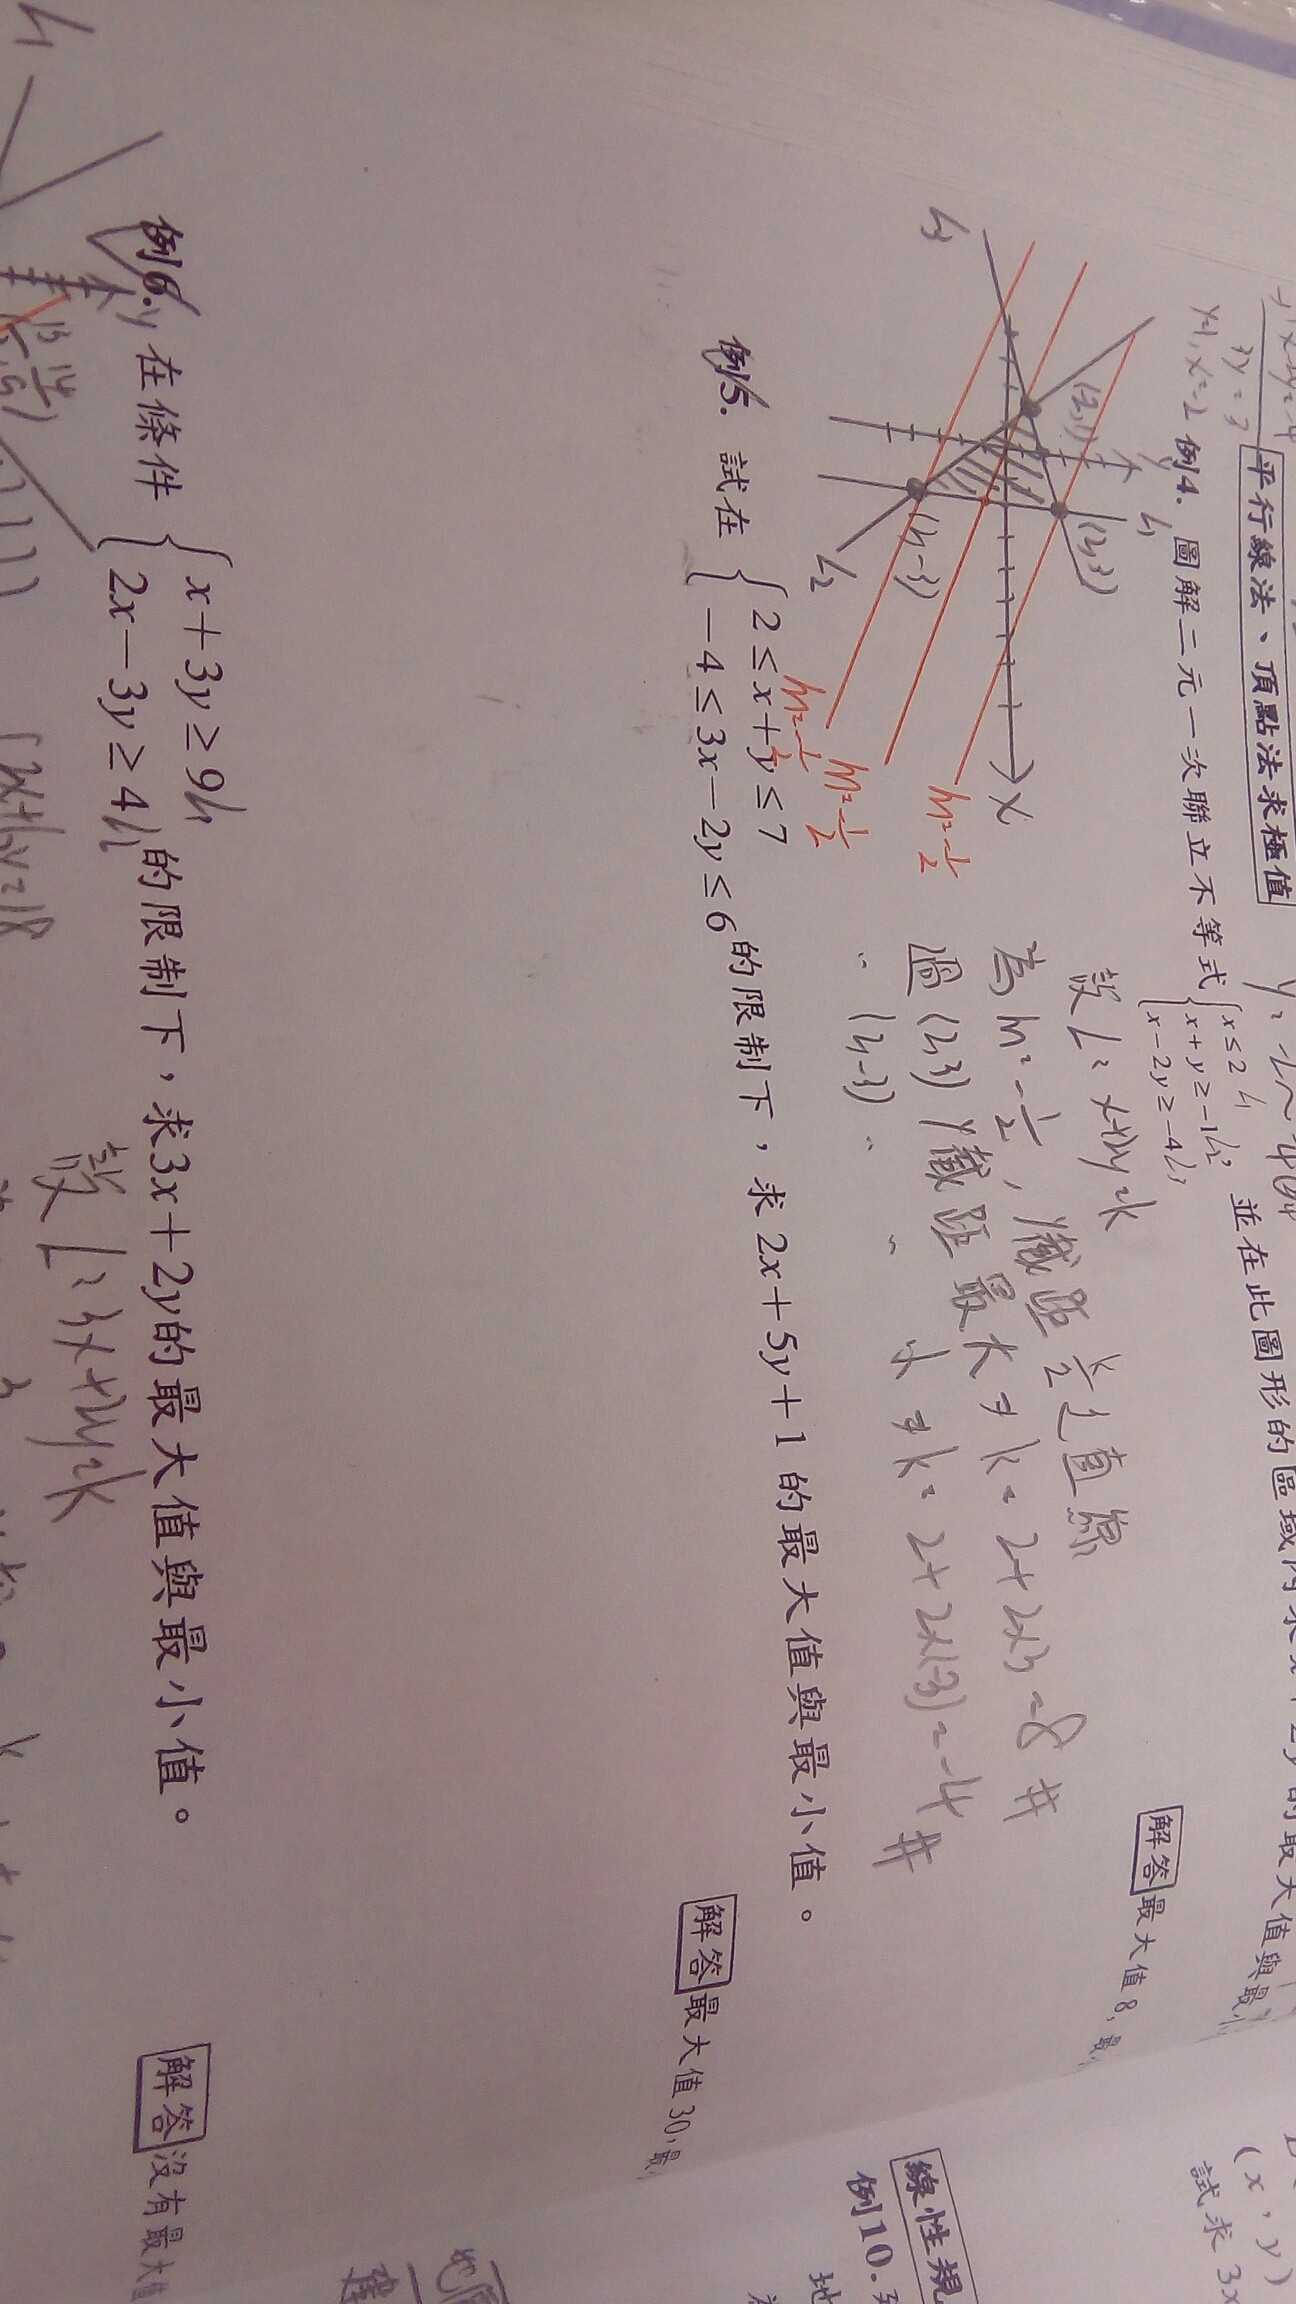 平行線法、頂點法求極值
例4. 圖解二元一次聯立不等式 { x≤2 L₁
x+y≥-1 L₂
x-2y≥-4 L₃
, 並在此圖形的區域內求x+2y的最大值與最小
解答 最大值8,最
3y=3
y=1, x=-2
設L: x+2y=k
為m=-1/2, y截距 k/2 之直線
過(2,3) y截距最大⇒k=2+2x3=8 #
〃 (2,-3) 〃 〃 小⇒k=2+2x(-3)=-4 #
y
L₁
(2,3)
x
L₃
L₂
(2,-3)
m=-1/2
m=-1/2
m=-1/2
例5. 試在 { 2≤x+y≤7
-4≤3x-2y≤6
的限制下,求2x+5y+1的最大值與最小值。
解答 最大值30,最
例6. 在條件 { x+3y≥9 L₁
2x-3y≥4 L₂
的限制下,求3x+2y的最大值與最小值。
設L: 3x+2y=k
解答 沒有最大值
y
L₁
線性規
例10.
地
(x,y)
試求3x